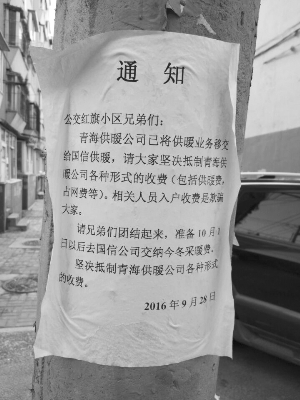 通知
公交红旗小区兄弟们：
青海供暖公司已将供暖业务移交
给国信供暖，请大家坚决抵制青海供
暖公司各种形式的收费（包括供暖费，
占网费等）。相关人员入户收费是欺骗
大家。
请兄弟们团结起来，准备10月1
日以后去国信公司交纳今冬采暖费。
坚决抵制青海供暖公司各种形式
的收费。
2016年9月28日